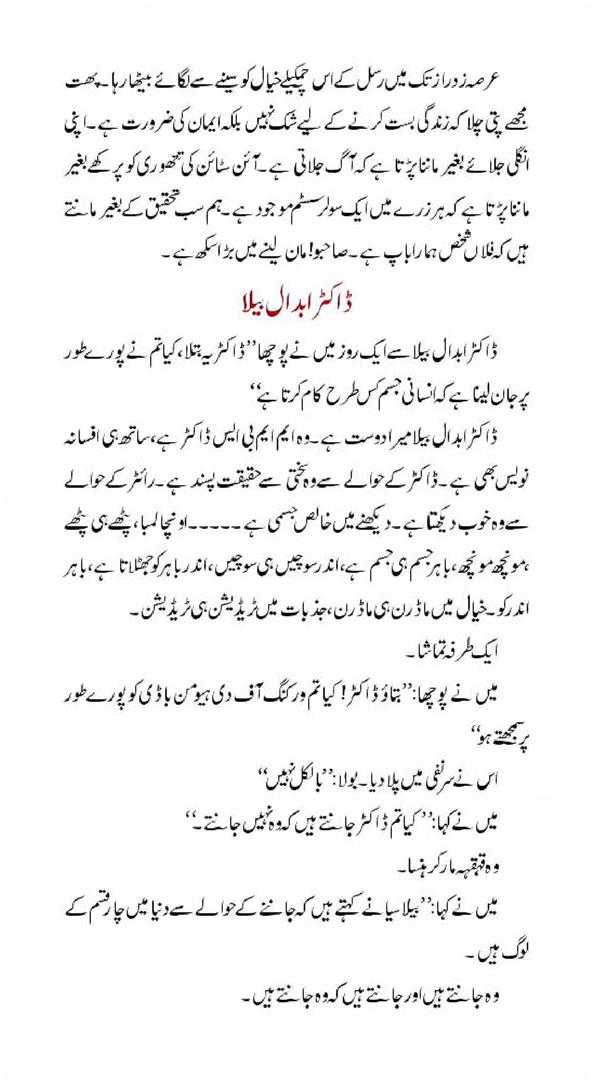 عرصہ زدراز تک میں رسل کے اس چمکیلے خیال کو سینے سے لگائے بیٹھا رہا۔ پھت
مجھے پتی چلا کہ زندگی بست کرنے کے لیے شک نہیں بلکہ ایمان کی ضرورت ہے۔ اپنی
انگلی جلائے بغیر ماننا پڑتا ہے کہ آگ جلاتی ہے۔ آئن سٹائن کی تھوری کو پرکھے بغیر
ماننا پڑتا ہے کہ ہر زرے میں ایک سولر سسٹم موجود ہے۔ ہم سب تحقیق کے بغیر مانتے
ہیں کہ فلاں شخص ہمارا باپ ہے۔ صاحبو! مان لینے میں بڑا سکھ ہے۔
ڈاکٹر ابدال بیلا
ڈاکٹر ابدال بیلا سے ایک روز میں نے پوچھا ”ڈاکٹر یہ بتلا، کیا تم نے پورے طور
پر جان لینا ہے کہ انسانی جسم کس طرح کام کرتا ہے“
ڈاکٹر ابدال بیلا میرا دوست ہے۔ وہ ایم ایم بی ایس ڈاکٹر ہے، ساتھ ہی افسانہ
نویس بھی ہے۔ ڈاکٹر کے حوالے سے وہ سختی سے حقیقت پسند ہے۔ رائٹر کے حوالے
سے وہ خوب دیکھتا ہے۔ دیکھنے میں خالص جسمی ہے ۔۔۔۔۔ اونچا لمبا، پٹھے ہی پٹھے
،مونچھ مونچھ، باہر جسم ہی جسم ہے، اندر سوچیں ہی سوچیں، اندر باہر کو جھٹلاتا ہے، باہر
اندر کو۔ خیال میں ماڈرن ہی ماڈرن، جذبات میں ٹریڈیشن ہی ٹریڈیشن۔
ایک طرفہ تماشا۔
میں نے پوچھا: ”بتاؤ ڈاکٹر! کیا تم ورکنگ آف دی ہیومن باڈی کو پورے طور
پر سمجھتے ہو“
اس نے سر نفی میں ہلا دیا۔ بولا: ”بالکل نہیں“
میں نے کہا: ”کیا تم ڈاکٹر جانتے ہیں کہ وہ نہیں جانتے۔“
وہ قہقہہ مار کر ہنسا۔
میں نے کہا: ”بیلا سیانے کہتے ہیں کہ جاننے کے حوالے سے دنیا میں چار قسم کے
لوگ ہیں۔
وہ جانتے ہیں اور جانتے ہیں کہ وہ جانتے ہیں۔